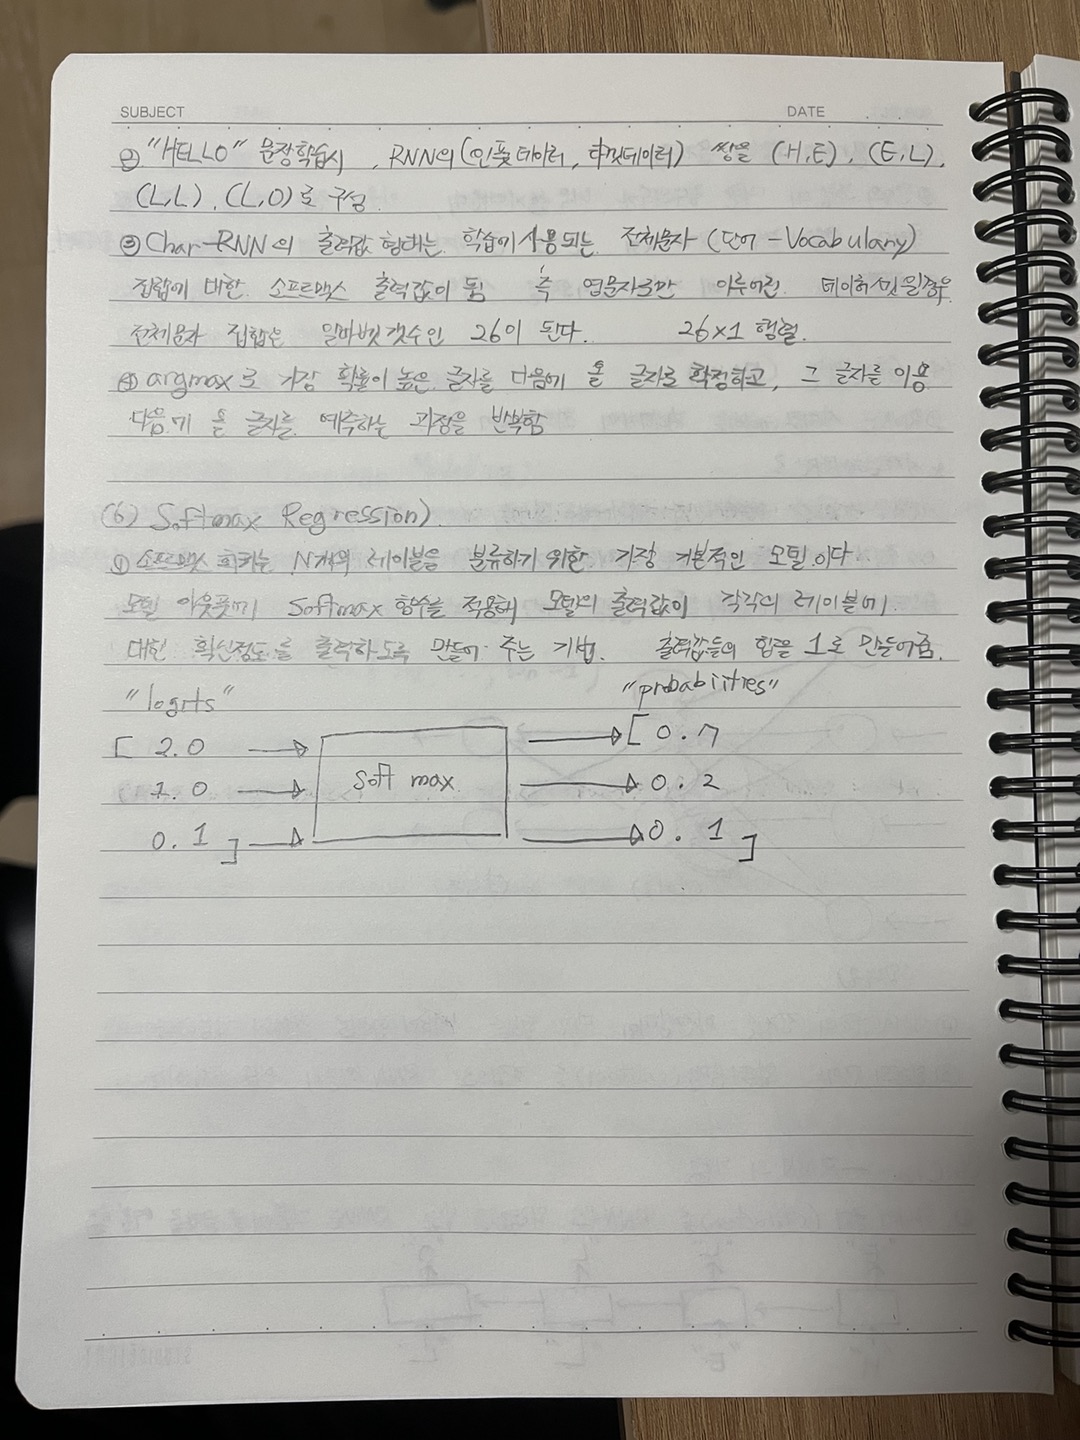 SUBJECT
DATE
② "HELLO" 문장학습시, RNN의 (인풋데이터, 타깃데이터) 쌍을 (H,E), (E,L),
(L,L), (L,O)로 구성
③ Char-RNN의 출력값 형태는 학습에 사용되는 전체문자 (단어-Vocabulary)
집합에 대한 소프트맥스 출력값이 됨 즉 영문자로만 이루어진 데이터셋일경우
전체문자 집합은 알파벳 갯수인 26이 된다. 26×1 행렬.
④ argmax로 가장 확률이 높은 글자를 다음에 올 글자로 확정하고, 그 글자를 이용
다음에 올 글자를 예측하는 과정을 반복함
(6) Softmax Regression)
① 소프트맥스 회귀는 N개의 레이블을 분류하기 위한 가장 기본적인 모델이다
모델 아웃풋에 Softmax 함수를 적용해 모델의 출력값이 각각의 레이블에
대한 확신정도를 출력하도록 만들어 주는 기법. 출력값들의 합을 1로 만들어줌.
"logits" "probabiities"
[ 2.0 → [ 0.7
1.0 → soft max → 0.2
0.1 ] → 0.1 ]